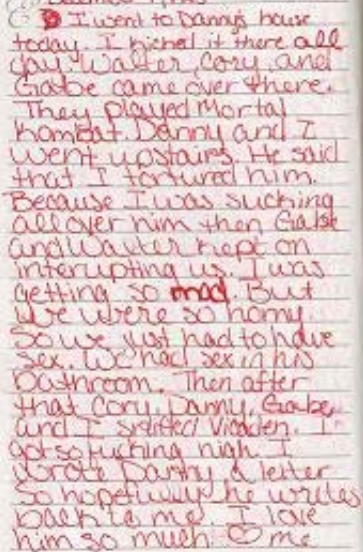 I went to Danny's house
today. I kicked it there all
day. Walter, Cory, and
Gabe came over there.
They played Mortal
Kombat. Danny and I
went upstairs. He said
that I tortured him.
Because I was sucking
all over him then Gabe
and Walter kept on
interrupting us. I was
getting so mad. But
we were so horny.
So we just had to have
sex. We had sex in his
bathroom. Then after
that Cory, Danny, Gabe,
and I sniffed. I
got so fucking high I
wrote Danny a letter
So hopefully he writes
back to me. I love
him so much! ♡ me